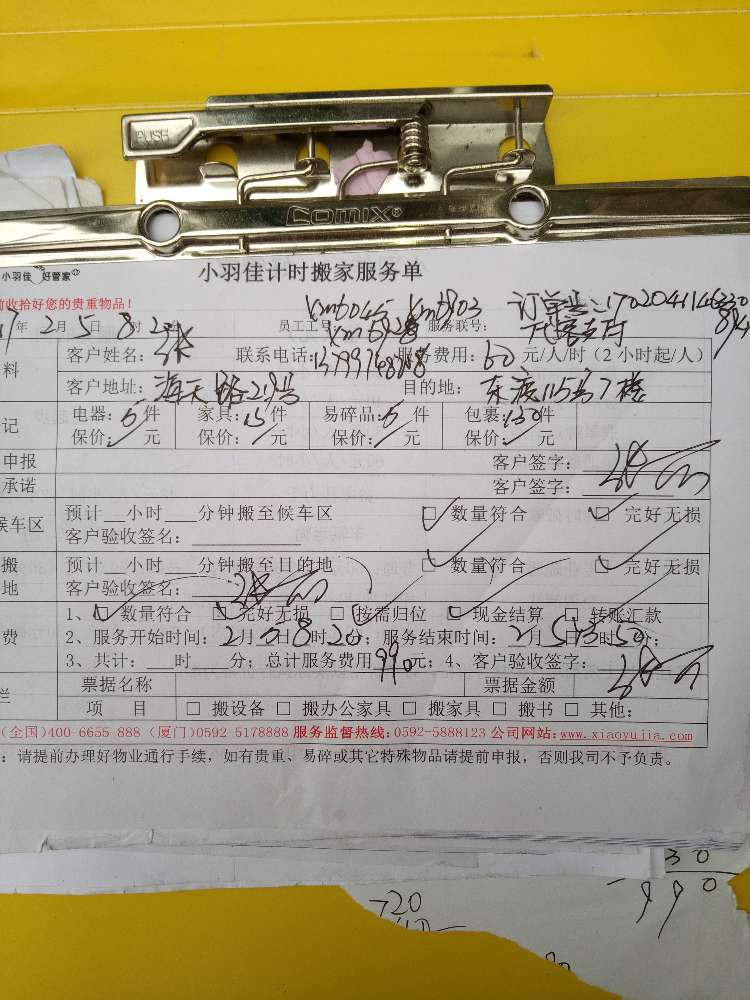 PUSH
COMIX®
小羽佳 好管家
小羽佳计时搬家服务单
前收拾好您的贵重物品！
订单号：
年2月5日8时2 员工工号： 服务联号：
料 客户姓名：张 联系电话： 服务费用：60元/人/时（2小时起/人）
客户地址：海天路29号 目的地：东渡115号7楼
记 电器：5件 家具：15件 易碎品：5件 包裹：150件
保价： 元 保价： 元 保价： 元 保价： 元
申报 客户签字：
承诺 客户签字：
候车区 预计__小时__分钟搬至候车区 □ 数量符合 □ 完好无损
客户验收签名：
搬 预计__小时__分钟搬至目的地 □ 数量符合 □ 完好无损
地 客户验收签名：
1、□ 数量符合 □ 完好无损 □ 按需归位 □ 现金结算 □ 转账汇款
费 2、服务开始时间：2月5日8时20分；服务结束时间：2月5日13时50分；
3、共计：__时__分；总计服务费用990元；4、客户验收签字：
票据名称 票据金额
栏 项 目 □ 搬设备 □ 搬办公家具 □ 搬家具 □ 搬书 □ 其他：
(全国)400-6655 888 (厦门)0592-5178888 服务监督热线：0592-5888123 公司网站：www.xiaoyujia.com
：请提前办理好物业通行手续，如有贵重、易碎或其它特殊物品请提前申报，否则我司不予负责。
30
990
720